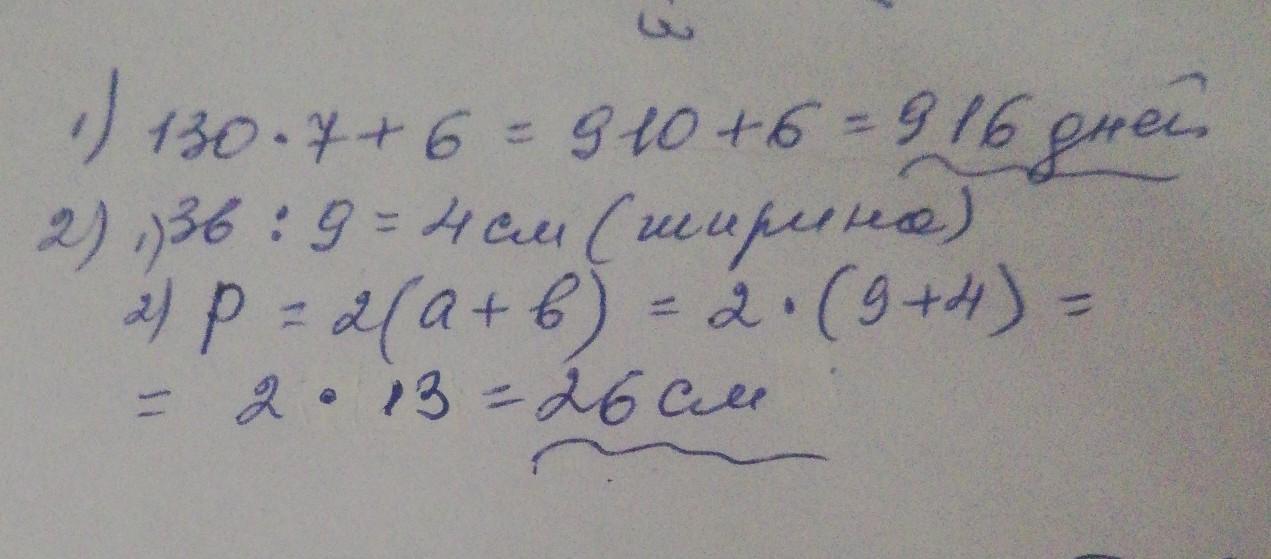 1) 130 · 7 + 6 = 910 + 6 = 916 дней
2) 1) 36 : 9 = 4 см (ширина)
2) P = 2(a + b) = 2 · (9 + 4) =
= 2 · 13 = 26 см